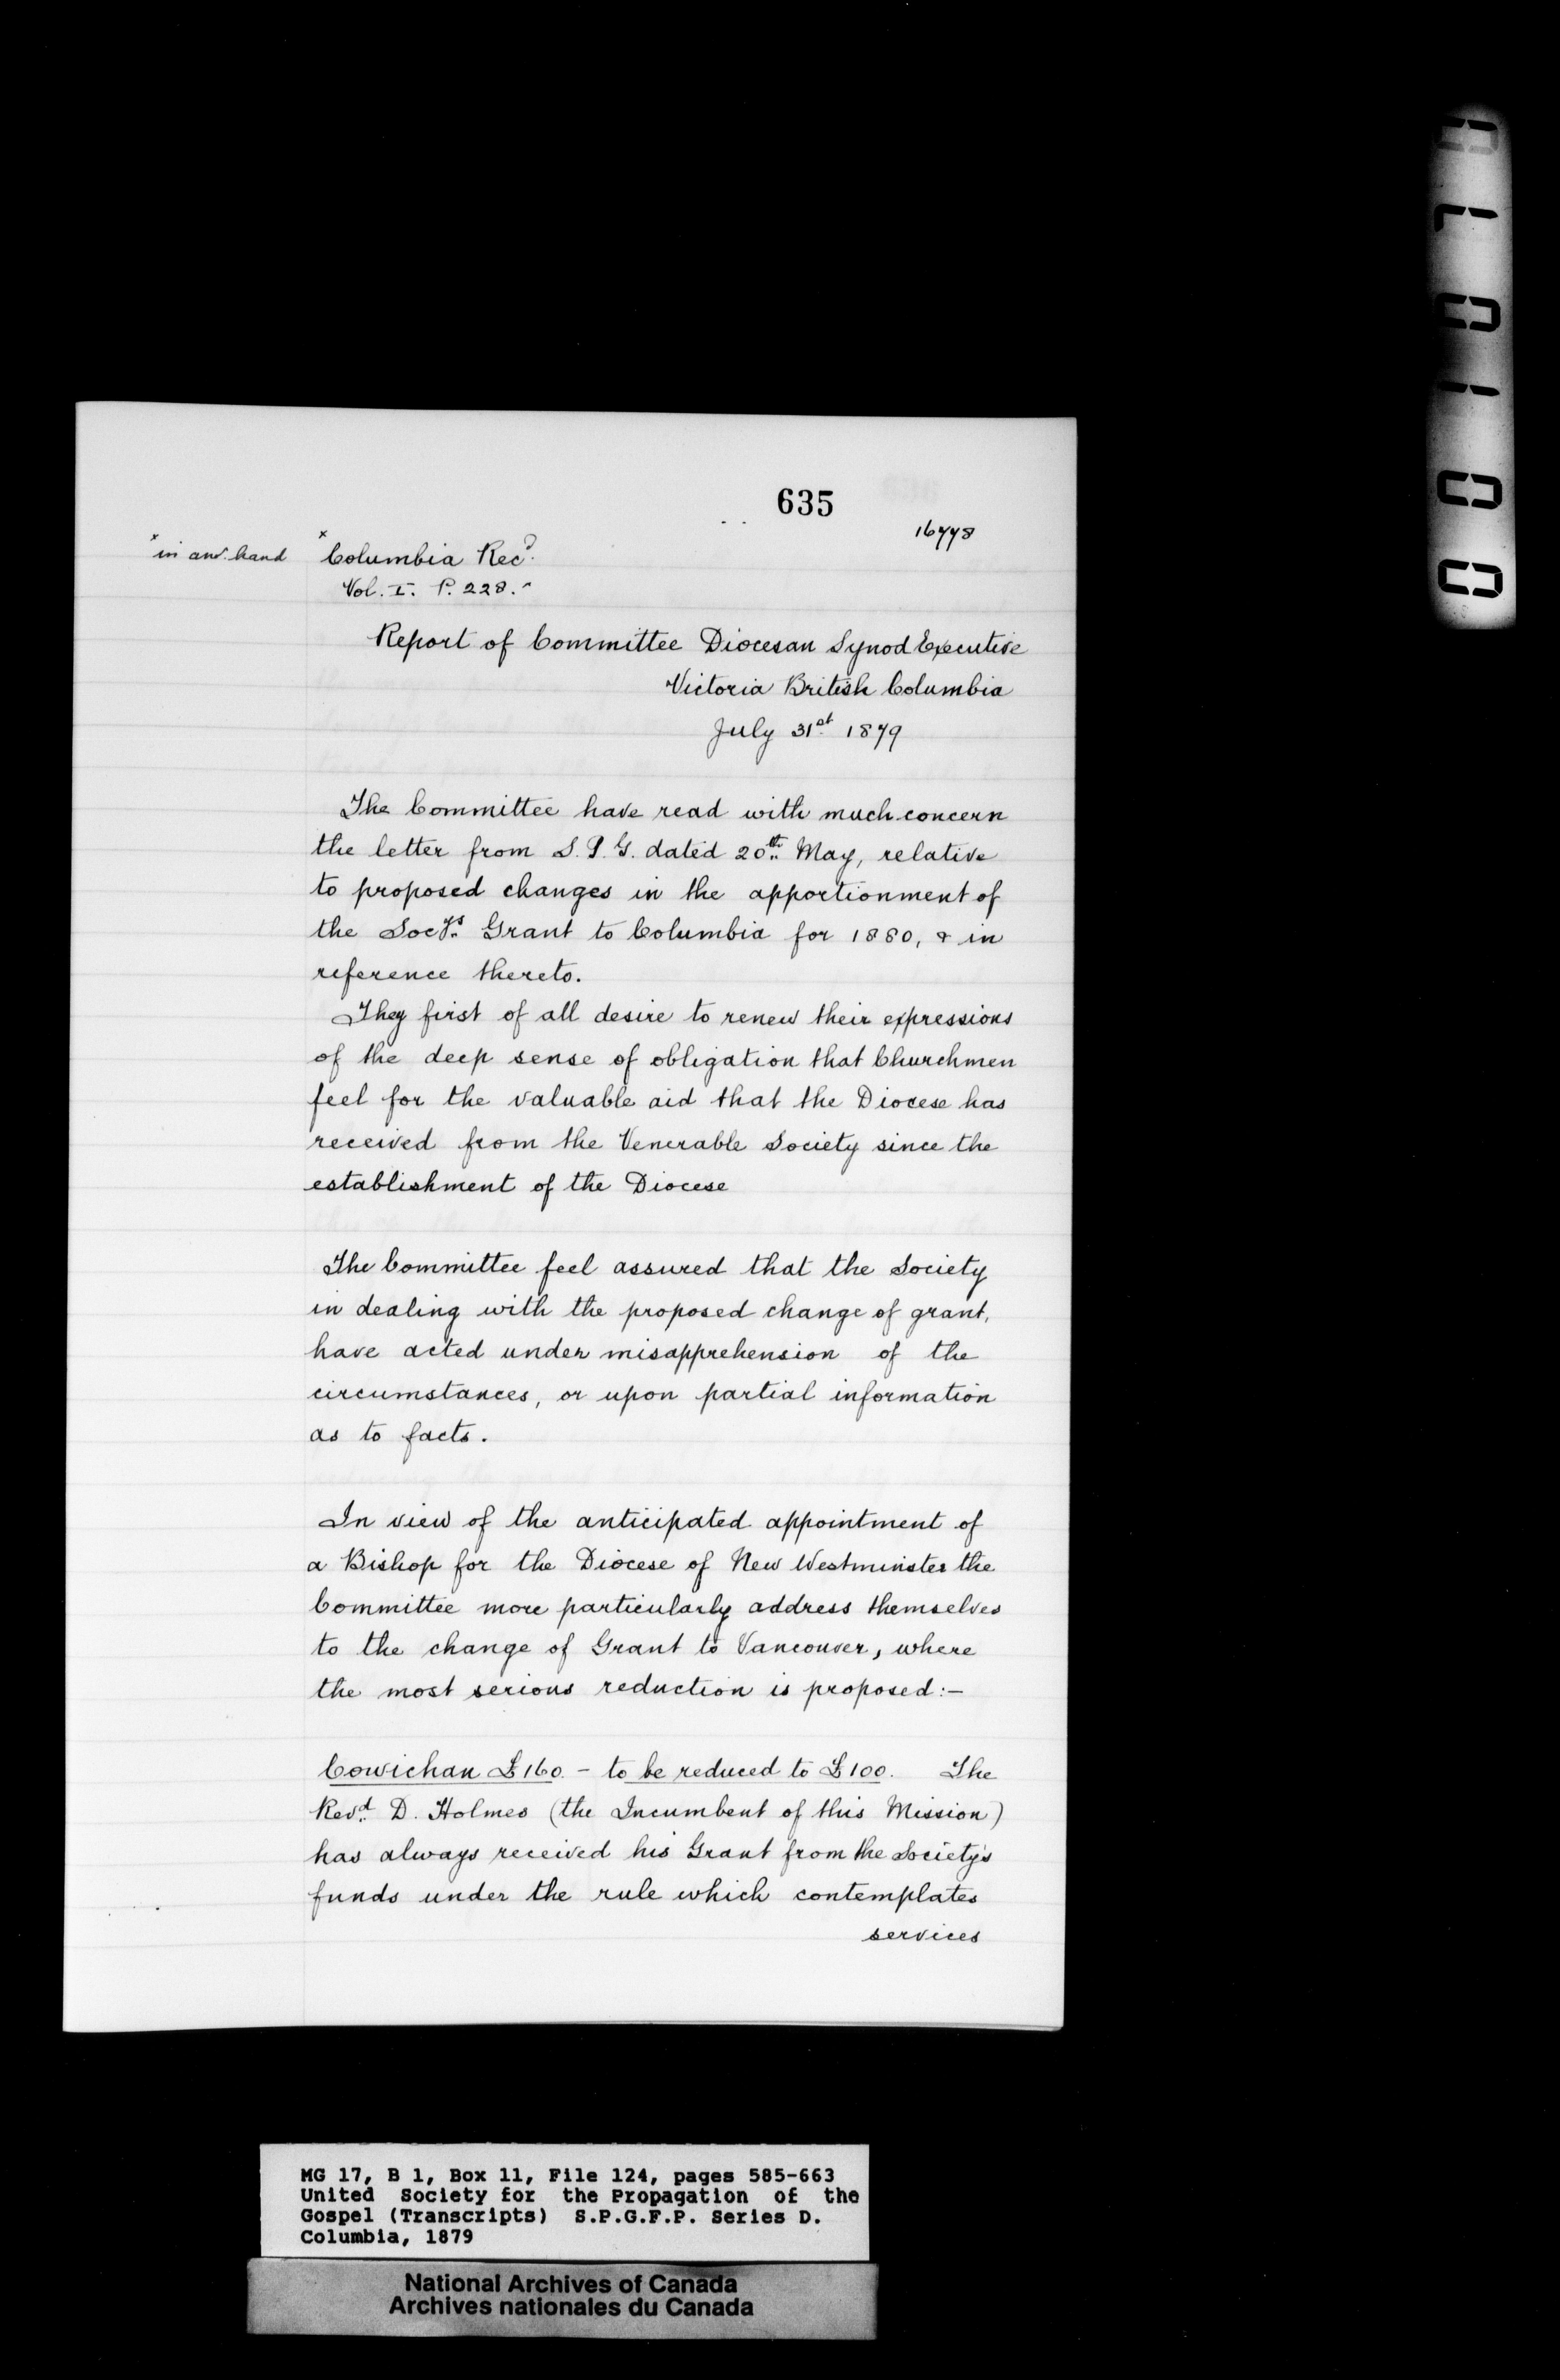 635
16778
x in anr. hand
x Columbia Recd.
Vol. I. P. 228. x
Report of Committee Diocesan Synod Executive
Victoria British Columbia
July 31st 1879
The Committee have read with much concern
the letter from S. P. G. dated 20th May, relative
to proposed changes in the apportionment of
the Socys. Grant to Columbia for 1880, & in
reference thereto.
They first of all desire to renew their expressions
of the deep sense of obligation that Churchmen
feel for the valuable aid that the Diocese has
received from the Venerable Society since the
establishment of the Diocese
The Committee feel assured that the Society
in dealing with the proposed change of grant,
have acted under misapprehension of the
circumstances, or upon partial information
as to facts.
In view of the anticipated appointment of
a Bishop for the Diocese of New Westminster the
Committee more particularly address themselves
to the change of Grant to Vancouver, where
the most serious reduction is proposed:-
Cowichan £160. - to be reduced to £100. The
Revd. D. Holmes (the Incumbent of this Mission)
has always received his Grant from the Society's
funds under the rule which contemplates
services
MG 17, B 1, Box 11, File 124, pages 585-663
United Society for the Propagation of the
Gospel (Transcripts) S.P.G.F.P. Series D.
Columbia, 1879
National Archives of Canada
Archives nationales du Canada